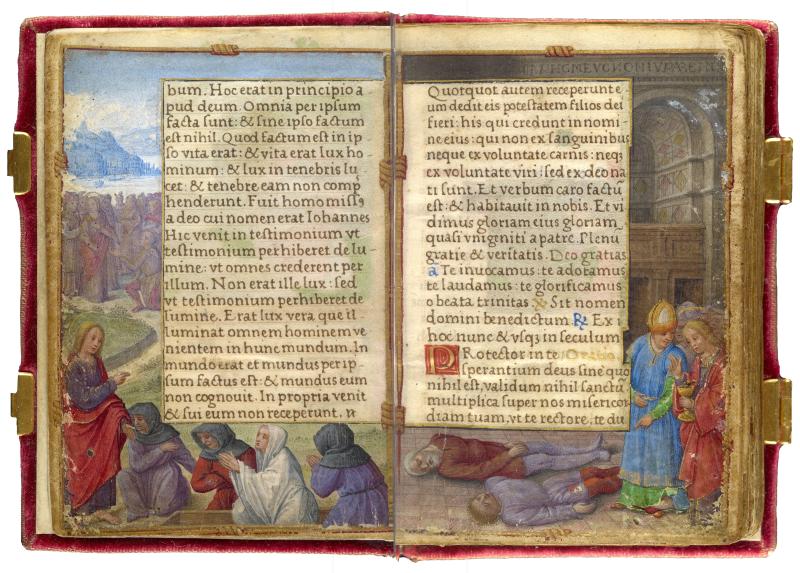 bum. Hoc erat in principio a
pud deum. Omnia per ipsum
facta sunt: & sine ipso factum
est nihil. Quod factum est in ip
so vita erat: & vita erat lux ho
minum: & lux in tenebris lu
cet: & tenebre eam non comp
henderunt. Fuit homo missꝯ
a deo cui nomen erat Iohannes
Hic venit in testimonium vt
testimonium perhiberet de lu-
mine: vt omnes crederent per
illum. Non erat ille lux: sed
vt testimonium perhiberet de
lumine. Erat lux vera que il
luminat omnem hominem ve
nientem in hunc mundum. In
mundo erat et mundus per ip-
sum factus est: & mundus eum
non cognouit. In propria venit
& sui eum non receperunt.
Quotquot autem receperunt e
um dedit eis potestatem filios dei
fieri: his qui credunt in nomi
ne eius: qui non ex sanguinibus
neque ex voluntate carnis: neqꝫ
ex voluntate viri: sed ex deo na
ti sunt. Et verbum caro factū
est: & habitauit in nobis. Et vi
dimus gloriam eius gloriam
quasi vnigeniti a patre. Plenū
gratie & veritatis. Deo gratias
a᷍ Te inuocamus: te adoramus
te laudamus: te glorificamus
o beata trinitas. ℣ Sit nomen
domini benedictum. ℟ Ex
hoc nunc & vsqꝫ in seculum
Protector in te Oratio
sperantium deus sine quo
nihil est, validum nihil sanctū
multiplica super nos misericor
diam tuam, vt te rectore, te du